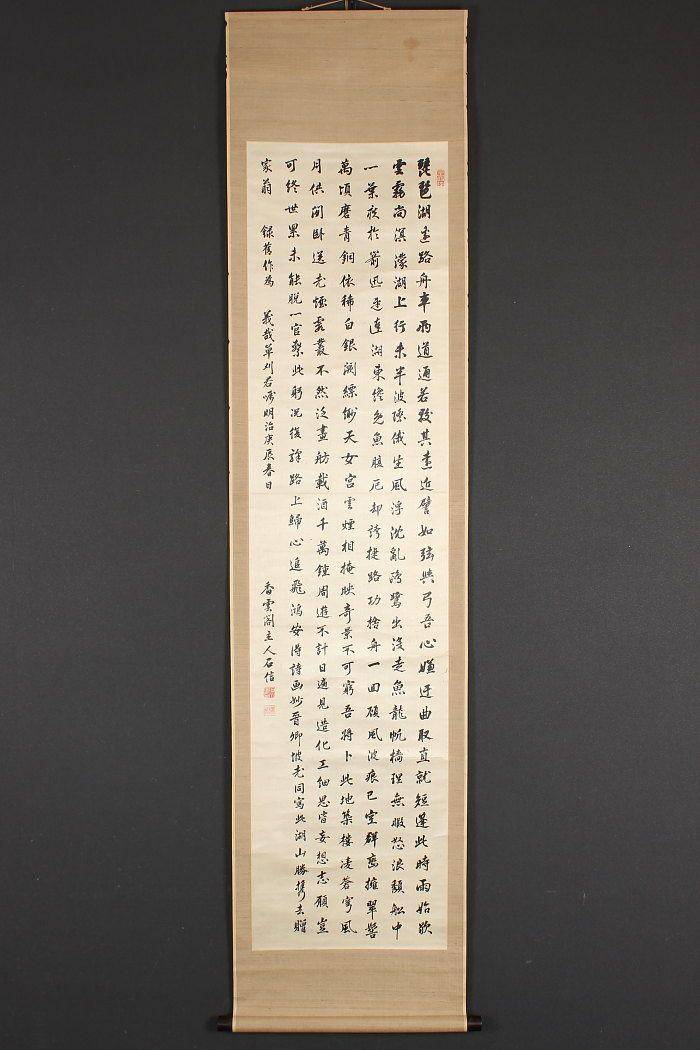 琵琶湖畫路舟車兩道通若較其遠近譬如弦與弓吾心嫌迂曲取直就短蓬此時雨始歇
雲霧尚溟濛湖上行未半波濤俄生風浮沈亂鴎鷺出沒走魚龍帆檣理無暇怒浪顛船中
一葉疾於箭迅速達湖東終免魚腹厄却誇捷路功捨舟一回顧風波痕已空群巒擁翠鬟
萬頃磨青銅依稀白銀闕縹緲天女宮雲煙相掩映奇景不可窮吾將卜此地築樓凌蒼穹風
月供閒臥送老煙霞叢不然泛畫舫載酒千萬鍾周遊不計日遍見造化工細思皆妄想志願豈
可終世累未能脫一官繫此躬況復詩路上歸心追飛鴻安得詩画妙晉卿坡老同寫此湖山勝携去贈
家翁 錄舊作為 義哉草刈君嘱明治庚辰春日 香雲閣主人石信